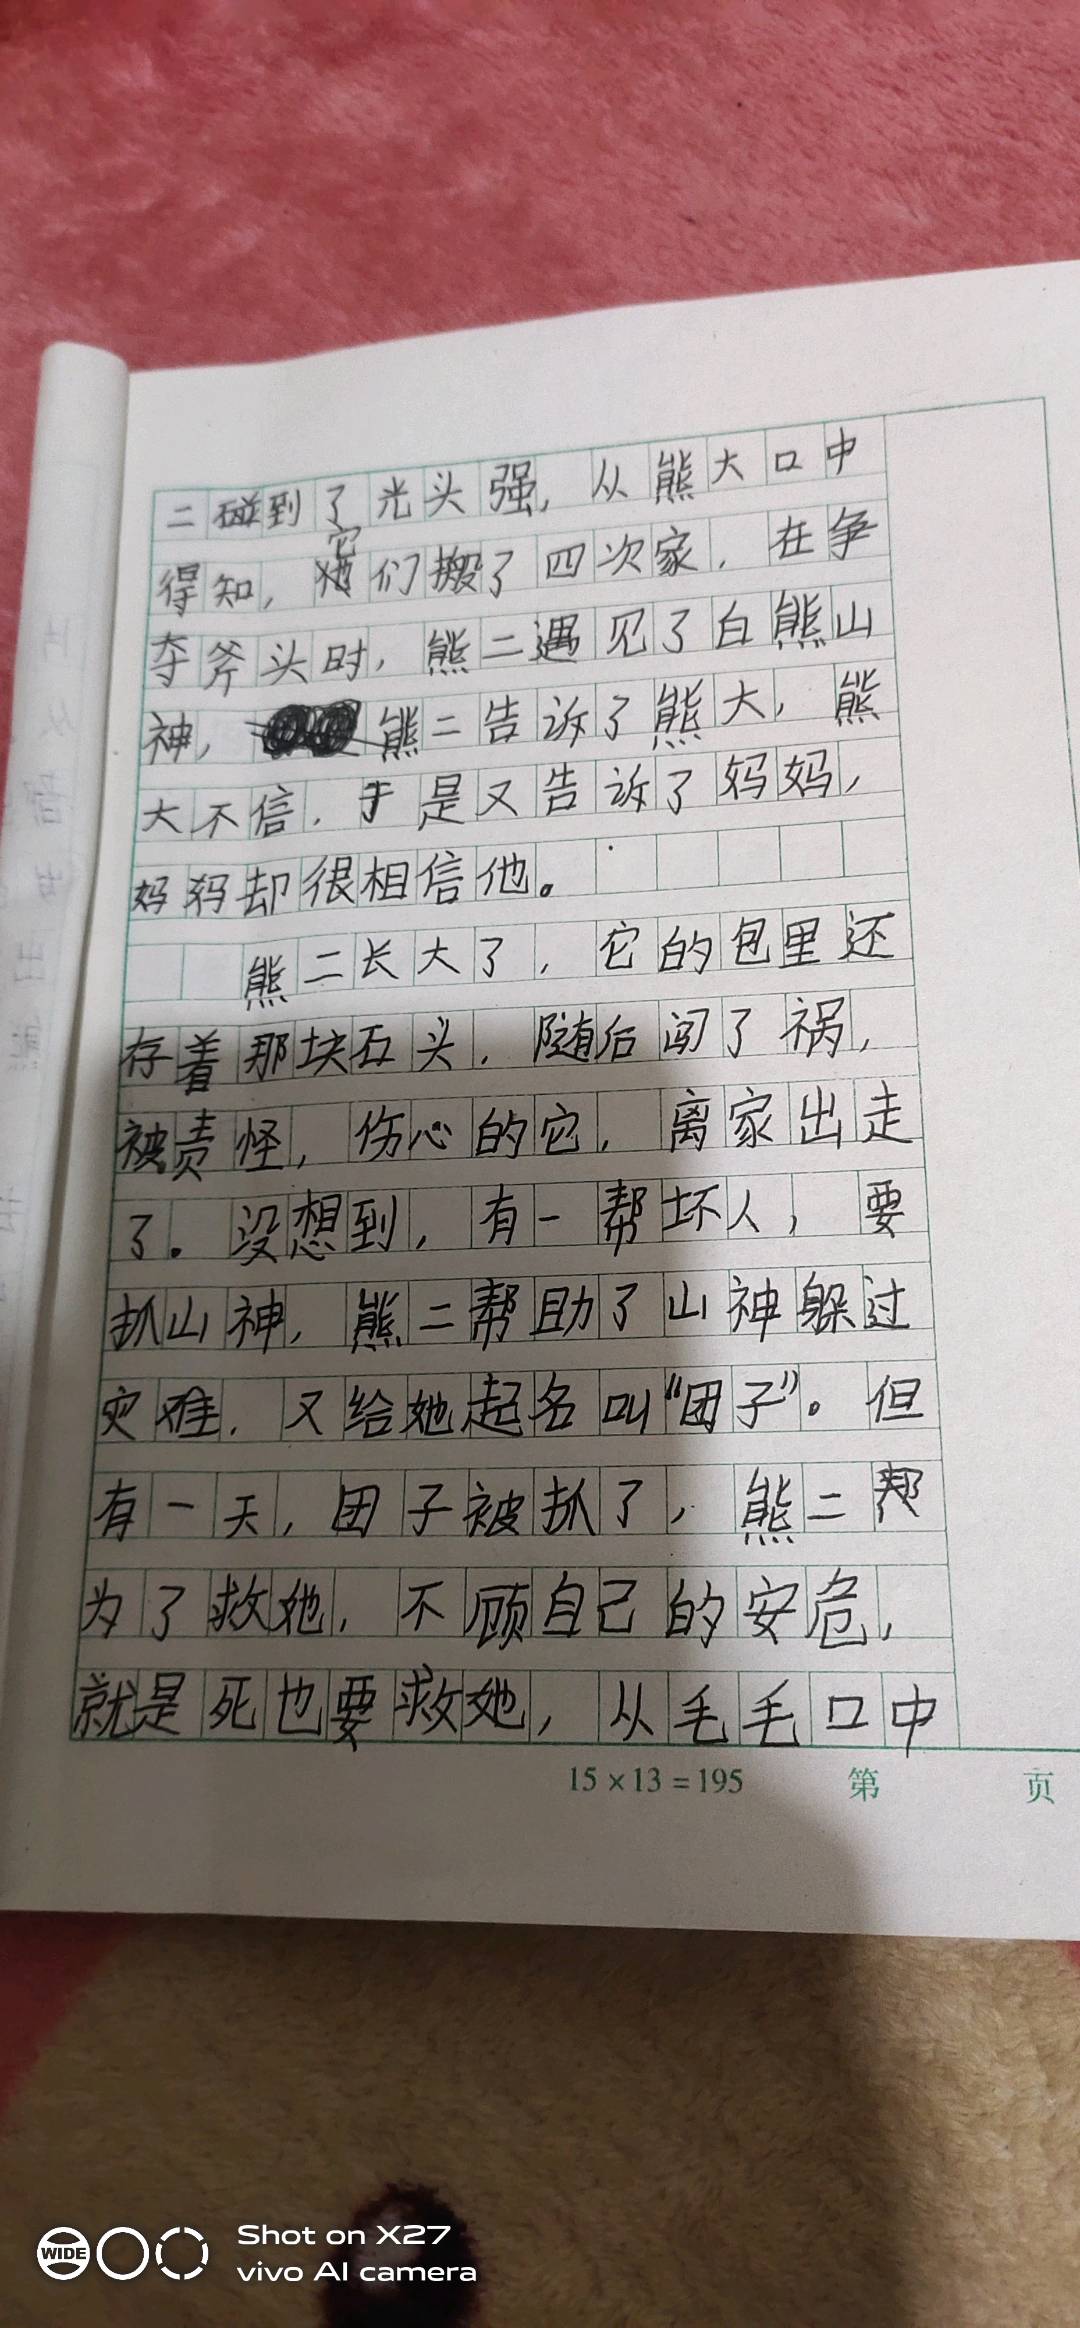 二碰到了光头强，从熊大口中
得知，它们搬了四次家，在争
夺斧头时，熊二遇见了白熊山
神，熊二告诉了熊大，熊
大不信，于是又告诉了妈妈，
妈妈却很相信他。
熊二长大了，它的包里还
存着那块石头，随后闯了祸，
被责怪，伤心的它，离家出走
了。没想到，有一帮坏人，要
抓山神，熊二帮助了山神躲过
灾难，又给她起名叫“团子”。但
有一天，团子被抓了，熊二帮
为了救她，不顾自己的安危，
就是死也要救她，从毛毛口中
15×13=195 第 页
Shot on X27
vivo AI camera
WIDE